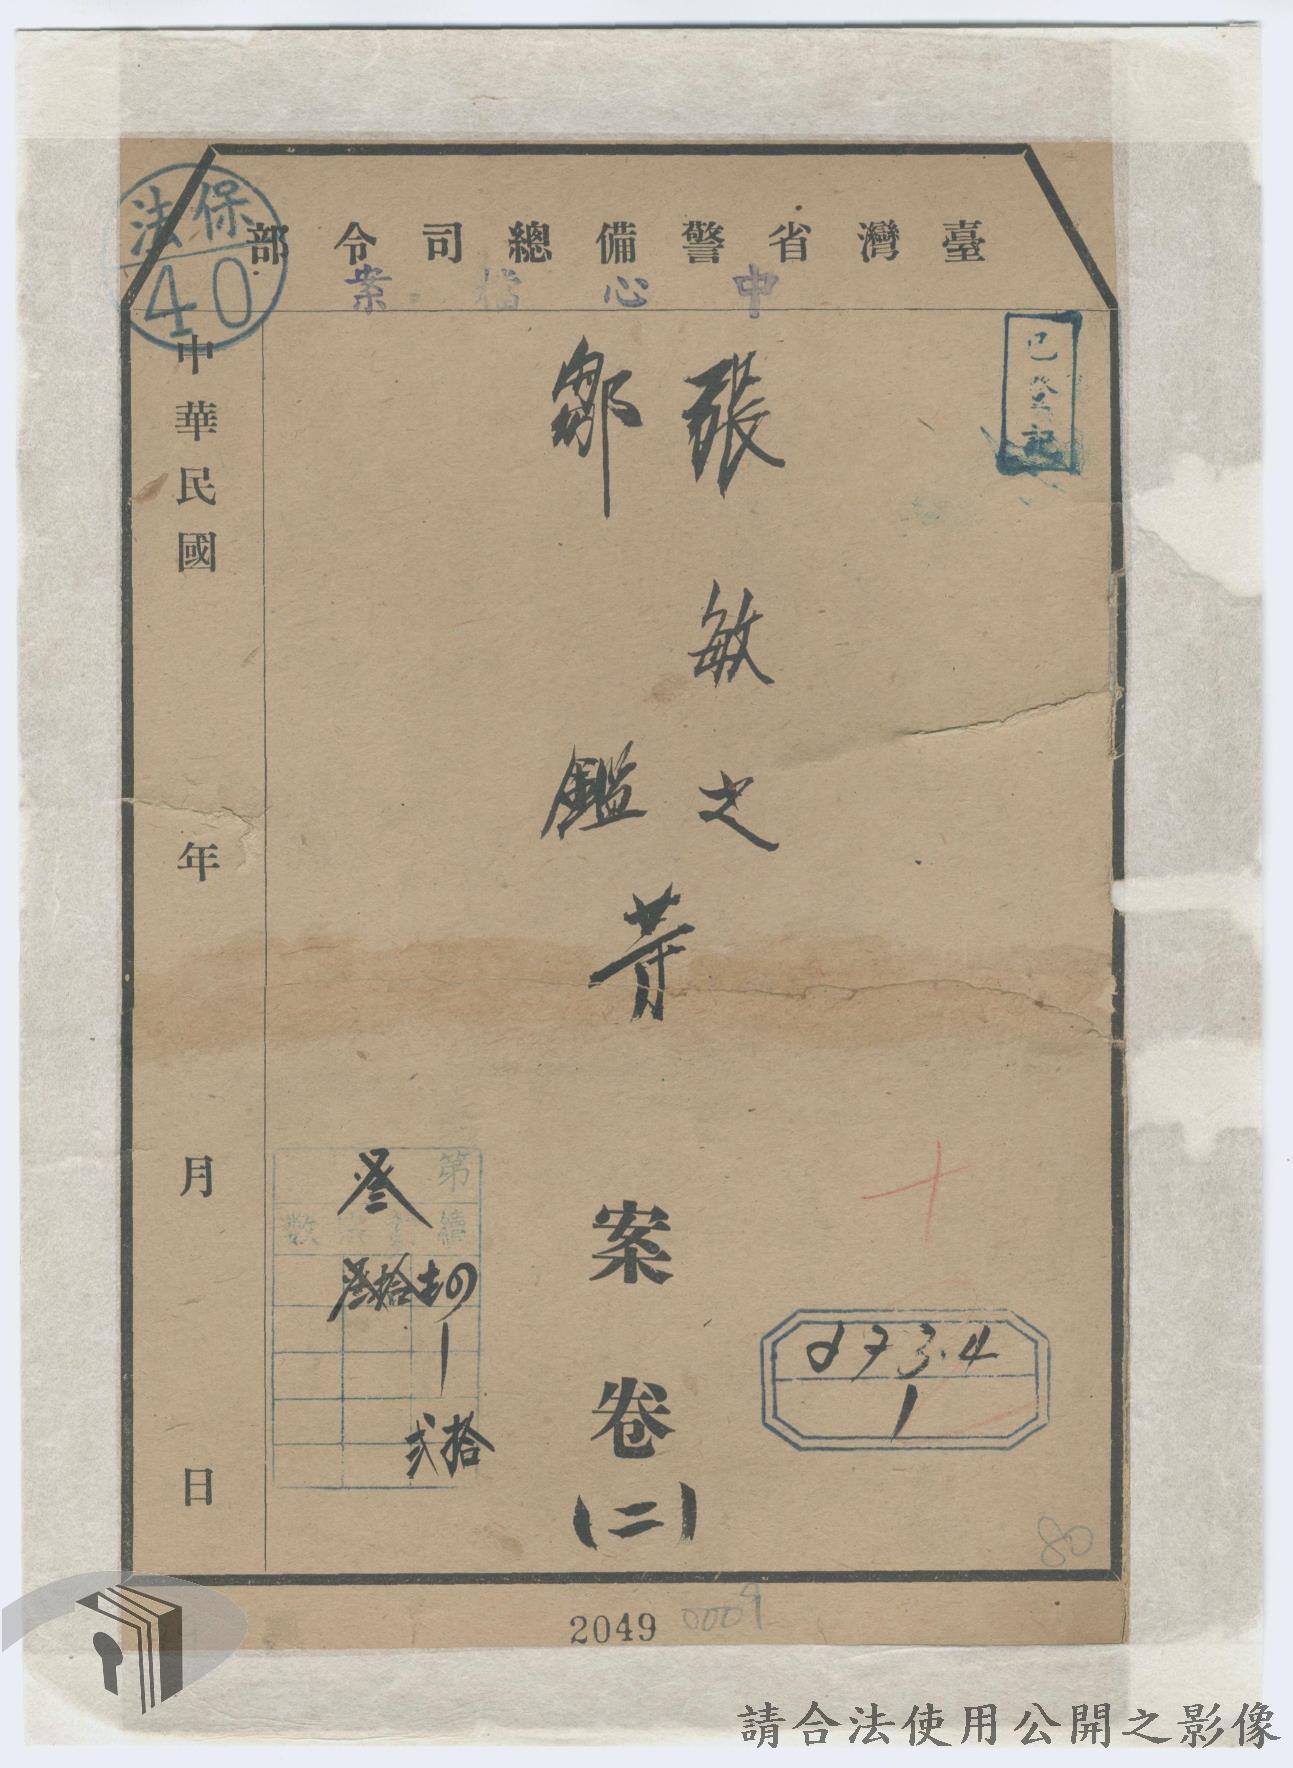 臺灣省警備總司令部
中心檔案
保法
40
已登記
張敏之
鄒鑑
等
案卷(二)
中華民國 年 月 日
第
叁
數
叁拾
拾弍
d73.4
1
80
2049
0009
請合法使用公開之影像